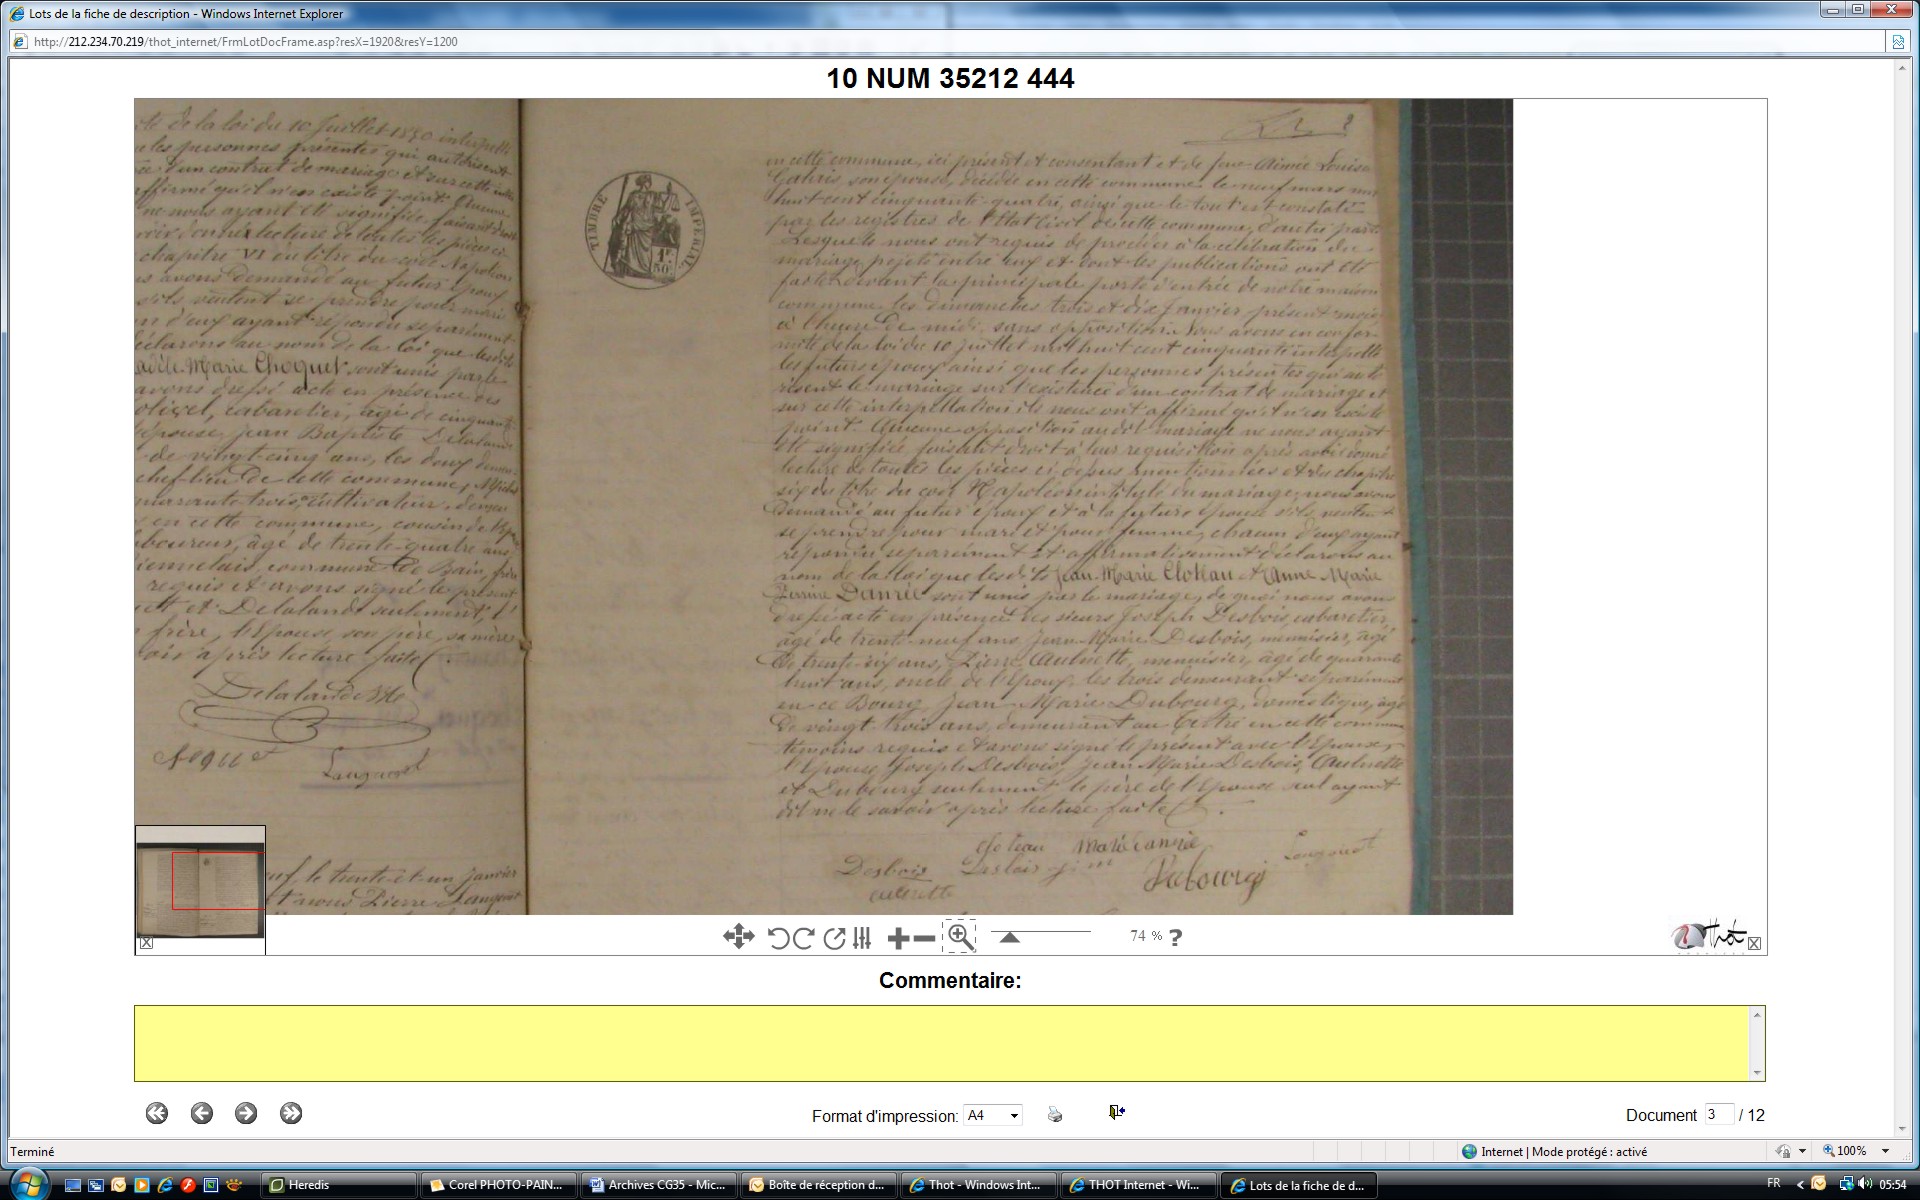 Lots de la fiche de description - Windows Internet Explorer
http://212.234.70.219/thot_internet/FrmLotDocFrame.asp?resX=1920&resY=1200
10 NUM 35212 444
de la loi du 10 Juillet 1850
les personnes présentes qui autorisent
un contrat de mariage et sur cette
affirmé qu'il n'en existe point. Aucune
ne nous ayant été signifiée faisant droit
lecture de toutes les pièces ci
chapitre VI du titre du code Napoléon
avons demandé au futur époux
s'ils veulent se prendre pour mari
d'eux ayant répondu séparément
déclarons au nom de la loi que lesdits
adèle Marie Choquet sont unis par le
avons dressé acte en présence des
cabaretier, âgé de cinquante
l'épouse, Jean Baptiste Delalande
de vingt-cinq ans, les deux
chef-lieu de cette commune, Michel
quarante trois, cultivateur,
en cette commune, cousin de
laboureur, âgé de trente-quatre ans
commune de Bain, frère
requis et avons signé le présent
et Delalande seulement,
frère, l'Epouse, son père, sa mère
après lecture faite
Delalande Bte
Langouet
le trente-et-un Janvier
nous Pierre Langouet
TIMBRE IMPÉRIAL
1F 50c
en cette commune, ici présent et consentant et de feue Aimée Louise
son épouse, décédée en cette commune le neuf mars mil
huit cent cinquante-quatre, ainsi que le tout est constaté
par les registres de l'Etat civil de cette commune, d'autre part
Lesquels nous ont requis de procéder à la célébration du
mariage projeté entre eux et dont les publications ont été
faites devant la principale porte d'entrée de notre maison
commune les dimanches trois et dix Janvier présent mois
à l'heure de midi, sans opposition. Nous avons en confor-
mité de la loi du 10 Juillet mil huit cent cinquante interpellé
les futurs époux ainsi que les personnes présentes qui auto
risent le mariage sur l'existence d'un contrat de mariage et
sur cette interpellation ils nous ont affirmé qu'il n'en existe
point. Aucune opposition audit mariage ne nous ayant
été signifiée faisant droit à leur requisition après avoir donné
lecture de toutes les pièces ci-dessus mentionnées et du chapitre
six du titre du code Napoléon intitulé du mariage, nous avons
demandé au futur époux et à la future épouse s'ils veulent
se prendre pour mari et pour femme, chacun d'eux ayant
répondu séparément et affirmativement déclarons au
nom de la loi que lesdits Jean-Marie Cloteau et Anne Marie
Perrine Danrée sont unis par le mariage, de quoi nous avons
dressé acte en présence des sieurs Joseph Desbois, cabaretier,
âgé de trente-neuf ans, Jean-Marie Desbois, menuisier, âgé
de trente-six ans, Pierre Aulnette, menuisier, âgé de quarante
huit ans, oncle de l'Epoux, les trois demeurant séparément
en ce Bourg, Jean-Marie Dubourg, domestique, âgé
de vingt-trois ans, demeurant au Tertre en cette commune
témoins requis et avons signé le présent avec l'Epoux,
l'Epouse, Joseph Desbois, Jean Marie Desbois, Aulnette
et Dubourg seulement le père de l'Epouse seul ayant
dit ne le savoir après lecture faite
cloteau
Langouet
Desbois Desbois j.m Dubourg
aulnette
74 % ?
Thot
Commentaire:
Format d'impression: A4
Document 3 / 12
Terminé
Internet | Mode protégé : activé
100%
Heredis
Corel PHOTO-PAIN...
Archives CG35 - Mic...
Boîte de réception d...
Thot - Windows Int...
THOT Internet - Wi...
Lots de la fiche de d...
FR
05:54